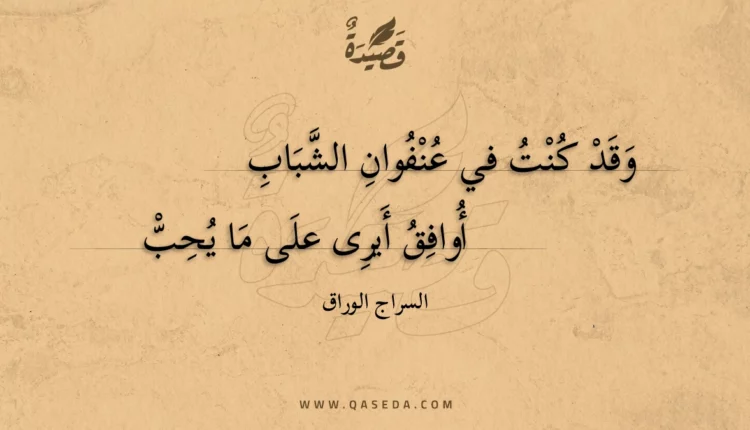 قَصِيْدَةٌ
وَقَدْ كُنْتُ في عُنْفُوانِ الشَّبَابِ
أُوافِقُ أَيرِى علَى مَا يُحِبّْ
السراج الوراق
WWW.QASEDA.COM